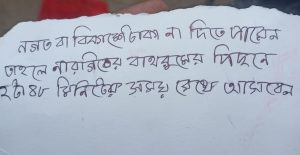 নগদ বা বিকাশে টাকা না দিতে পারেন
তাহলে নারজিতের বাথরুমের পিছনে
২টা ৪৮ মিনিটের সময় রেখে আসবেন